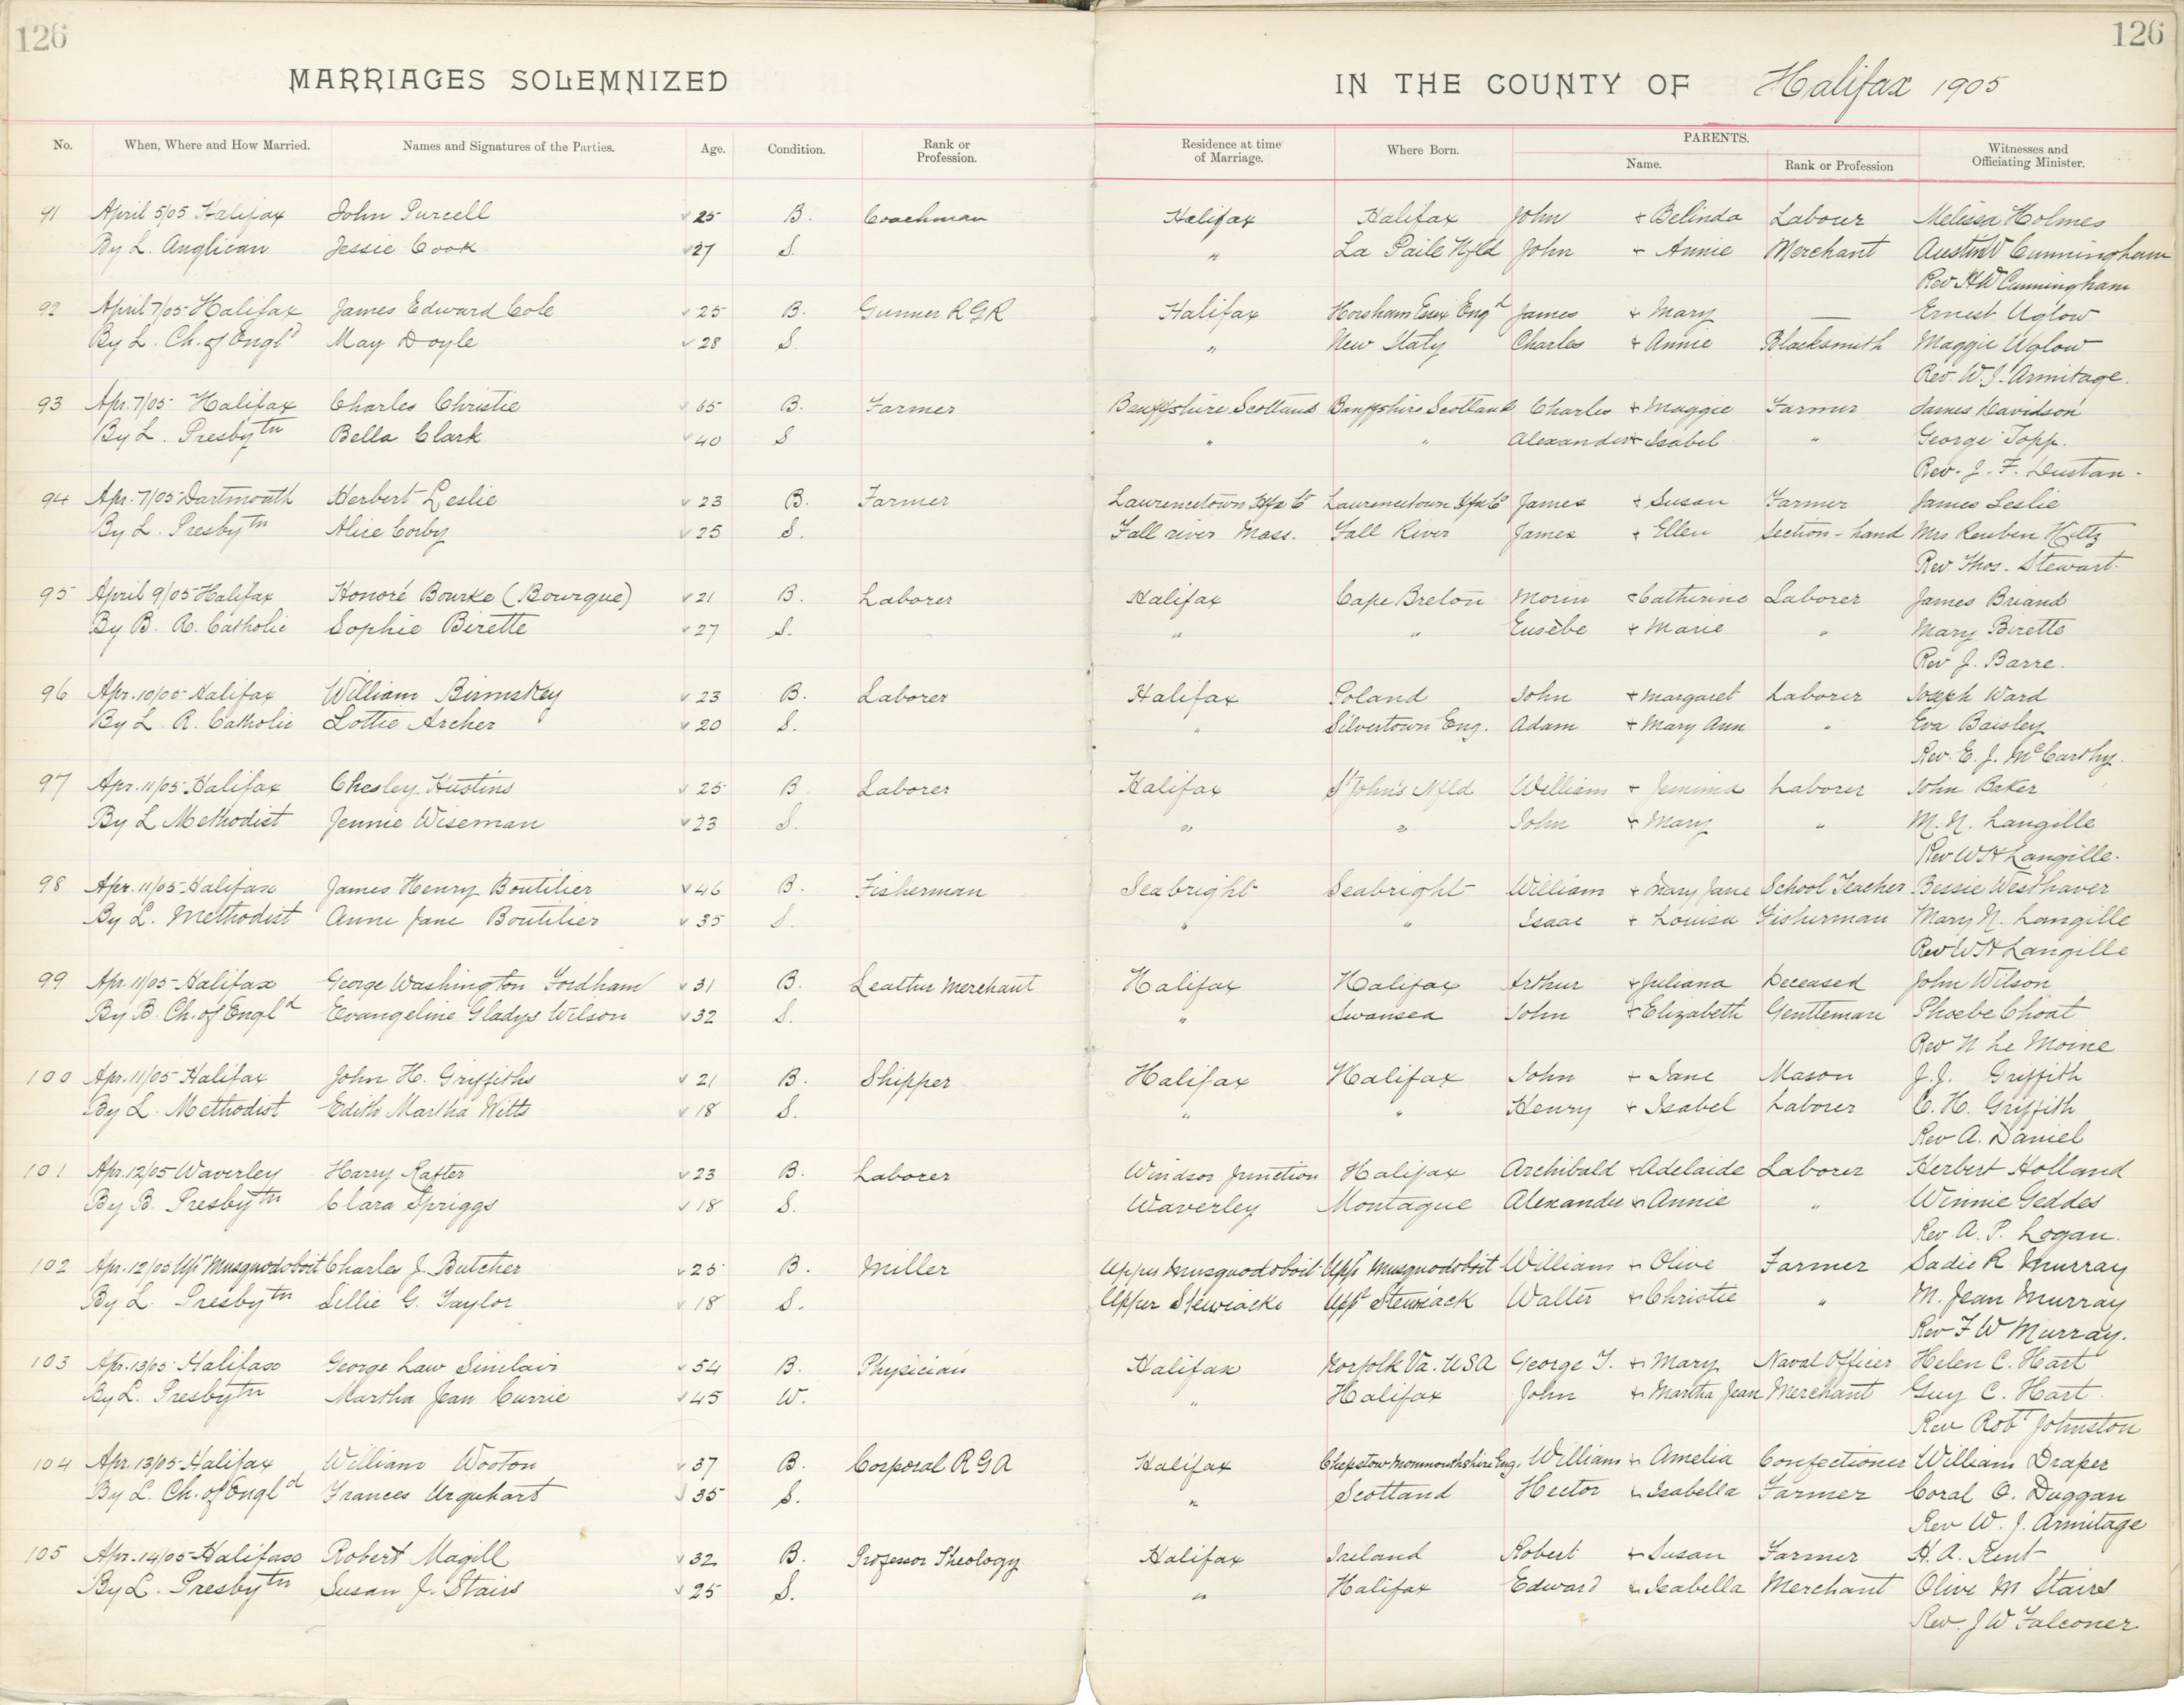 126
126
MARRIAGES SOLEMNIZED IN THE COUNTY OF Halifax 1905
No. When, Where and How Married. Names and Signatures of the Parties. Age. Condition. Rank or Profession. Residence at time of Marriage. Where Born. PARENTS. Name. Rank or Profession Witnesses and Officiating Minister.
91 April 5/05 Halifax John Purcell 25 B. Coachman Halifax Halifax John + Belinda Labourer Melissa Holmes
By L. Anglican Jessie Cook 27 S. " La Paile Nfld John + Annie Merchant Austin W Cunningham
Rev H W Cunningham
92 April 7/05 Halifax James Edward Cole 25 B. Gunner R G R Halifax Horsham Essex Engd James + Mary — Ernest Uglow
By L. Ch. of Engld May Doyle 28 S. " New Italy Charles + Annie Blacksmith Maggie Uglow
Rev. W. J. Armitage.
93 Apr. 7/05 Halifax Charles Christie 65 B. Farmer Banffshire Scotland Banffshire Scotland Charles + Maggie Farmer James Davidson
By L. Presbytn Bella Clark 40 S " " Alexander + Isabel " George Topp.
Rev. J. F. Dustan.
94 Apr. 7/05 Dartmouth Herbert Leslie 23 B. Farmer Laurencetown Hfx Co Laurencetown Hfx Co James + Susan Farmer James Leslie
By L. Presbytn Alice Corby 25 S. Fall river Mass. Fall River James + Ellen Section-hand Mrs Reuben Hiltz
Rev Thos. Stewart.
95 April 9/05 Halifax Honoré Bourke (Bourque) 21 B. Laborer Halifax Cape Breton Morin + Catherine Laborer James Briand
By B. R. Catholic Sophie Birette 27 S. " " Eusèbe + Marie " Mary Birette
Rev J. Barre.
96 Apr. 10/05 Halifax William 23 B. Laborer Halifax Poland John + Margaret Laborer Joseph Ward
By L. R. Catholic Lottie Archer 20 S. " Silvertown Eng. Adam + Mary Ann " Eva Baisley
Rev. E. J. McCarthy.
97 Apr. 11/05 Halifax Chesley Hustins 25 B Laborer Halifax St John's Nfld William + Jemima Laborer John Baker
By L Methodist Jennie Wiseman 23 S. " " John + Mary " M. N. Langille
Rev W H Langille.
98 Apr. 11/05 Halifax James Henry Boutilier 46 B. Fisherman Seabright Seabright William + Mary Jane School Teacher Bessie Westhaver
By L. Methodist Anne Jane Boutilier 35 S. " " Isaac + Louisa Fisherman Mary N. Langille
Rev W H Langille
99 Apr. 11/05 Halifax George Washington Fordham 31 B. Leather Merchant Halifax Halifax Arthur + Juliana Deceased John Wilson
By B. Ch. of Engld Evangeline Gladys Wilson 32 S. " Swansea John + Elizabeth Gentleman Phoebe Choat
Rev N Le Moine
100 Apr. 11/05 Halifax John H. Griffiths 21 B. Shipper Halifax Halifax John + Jane Mason J. J. Griffith
By L. Methodist Edith Martha Witts 18 S. " " Henry + Isabel Laborer C. H. Griffith
Rev A. Daniel
101 Apr. 12/05 Waverley Harry Rafter 23 B. Laborer Windsor Junction Halifax Archibald + Adelaide Laborer Herbert Holland
By B. Presbytn Clara Spriggs 18 S. Waverley Montague Alexander + Annie " Winnie Geddes
Rev. A. P. Logan.
102 Apr. 12/05 Upr Musquodoboit Charles J. Butcher 25 B. Miller Upper Musquodoboit Uppr Musquodoboit William + Olive Farmer Sadie R. Murray
By L. Presbytn Lillie G. Taylor 18 S. Upper Stewiacke Uppr Stewiack Walter + Christie " M. Jean Murray
Rev F W Murray.
103 Apr. 13/05 Halifax George Law Sinclair 54 B. Physician Halifax Norfolk Va. USA George T. + Mary Naval Officer Helen C. Hart
By L. Presbytn Martha Jean Currie 45 W. " Halifax John + Martha Jean Merchant Guy C. Hart.
Rev Robt Johnston
104 Apr. 13/05 Halifax William Wooton 37 B. Corporal R G A Halifax Chepstow Monmouthshire Eng. William + Amelia Confectioner William Draper
By L. Ch. of Engld Frances Urquhart 35 S. " Scotland Hector + Isabella Farmer Coral O. Duggan
Rev W. J. Armitage
105 Apr. 14/05 Halifax Robert Magill 32 B. Professor Theology. Halifax Ireland Robert + Susan Farmer H. A. Kent
By L. Presbytn Susan J. Stairs 25 S. " Halifax Edward + Isabella Merchant Olive M Stairs
Rev. J W Falconer.